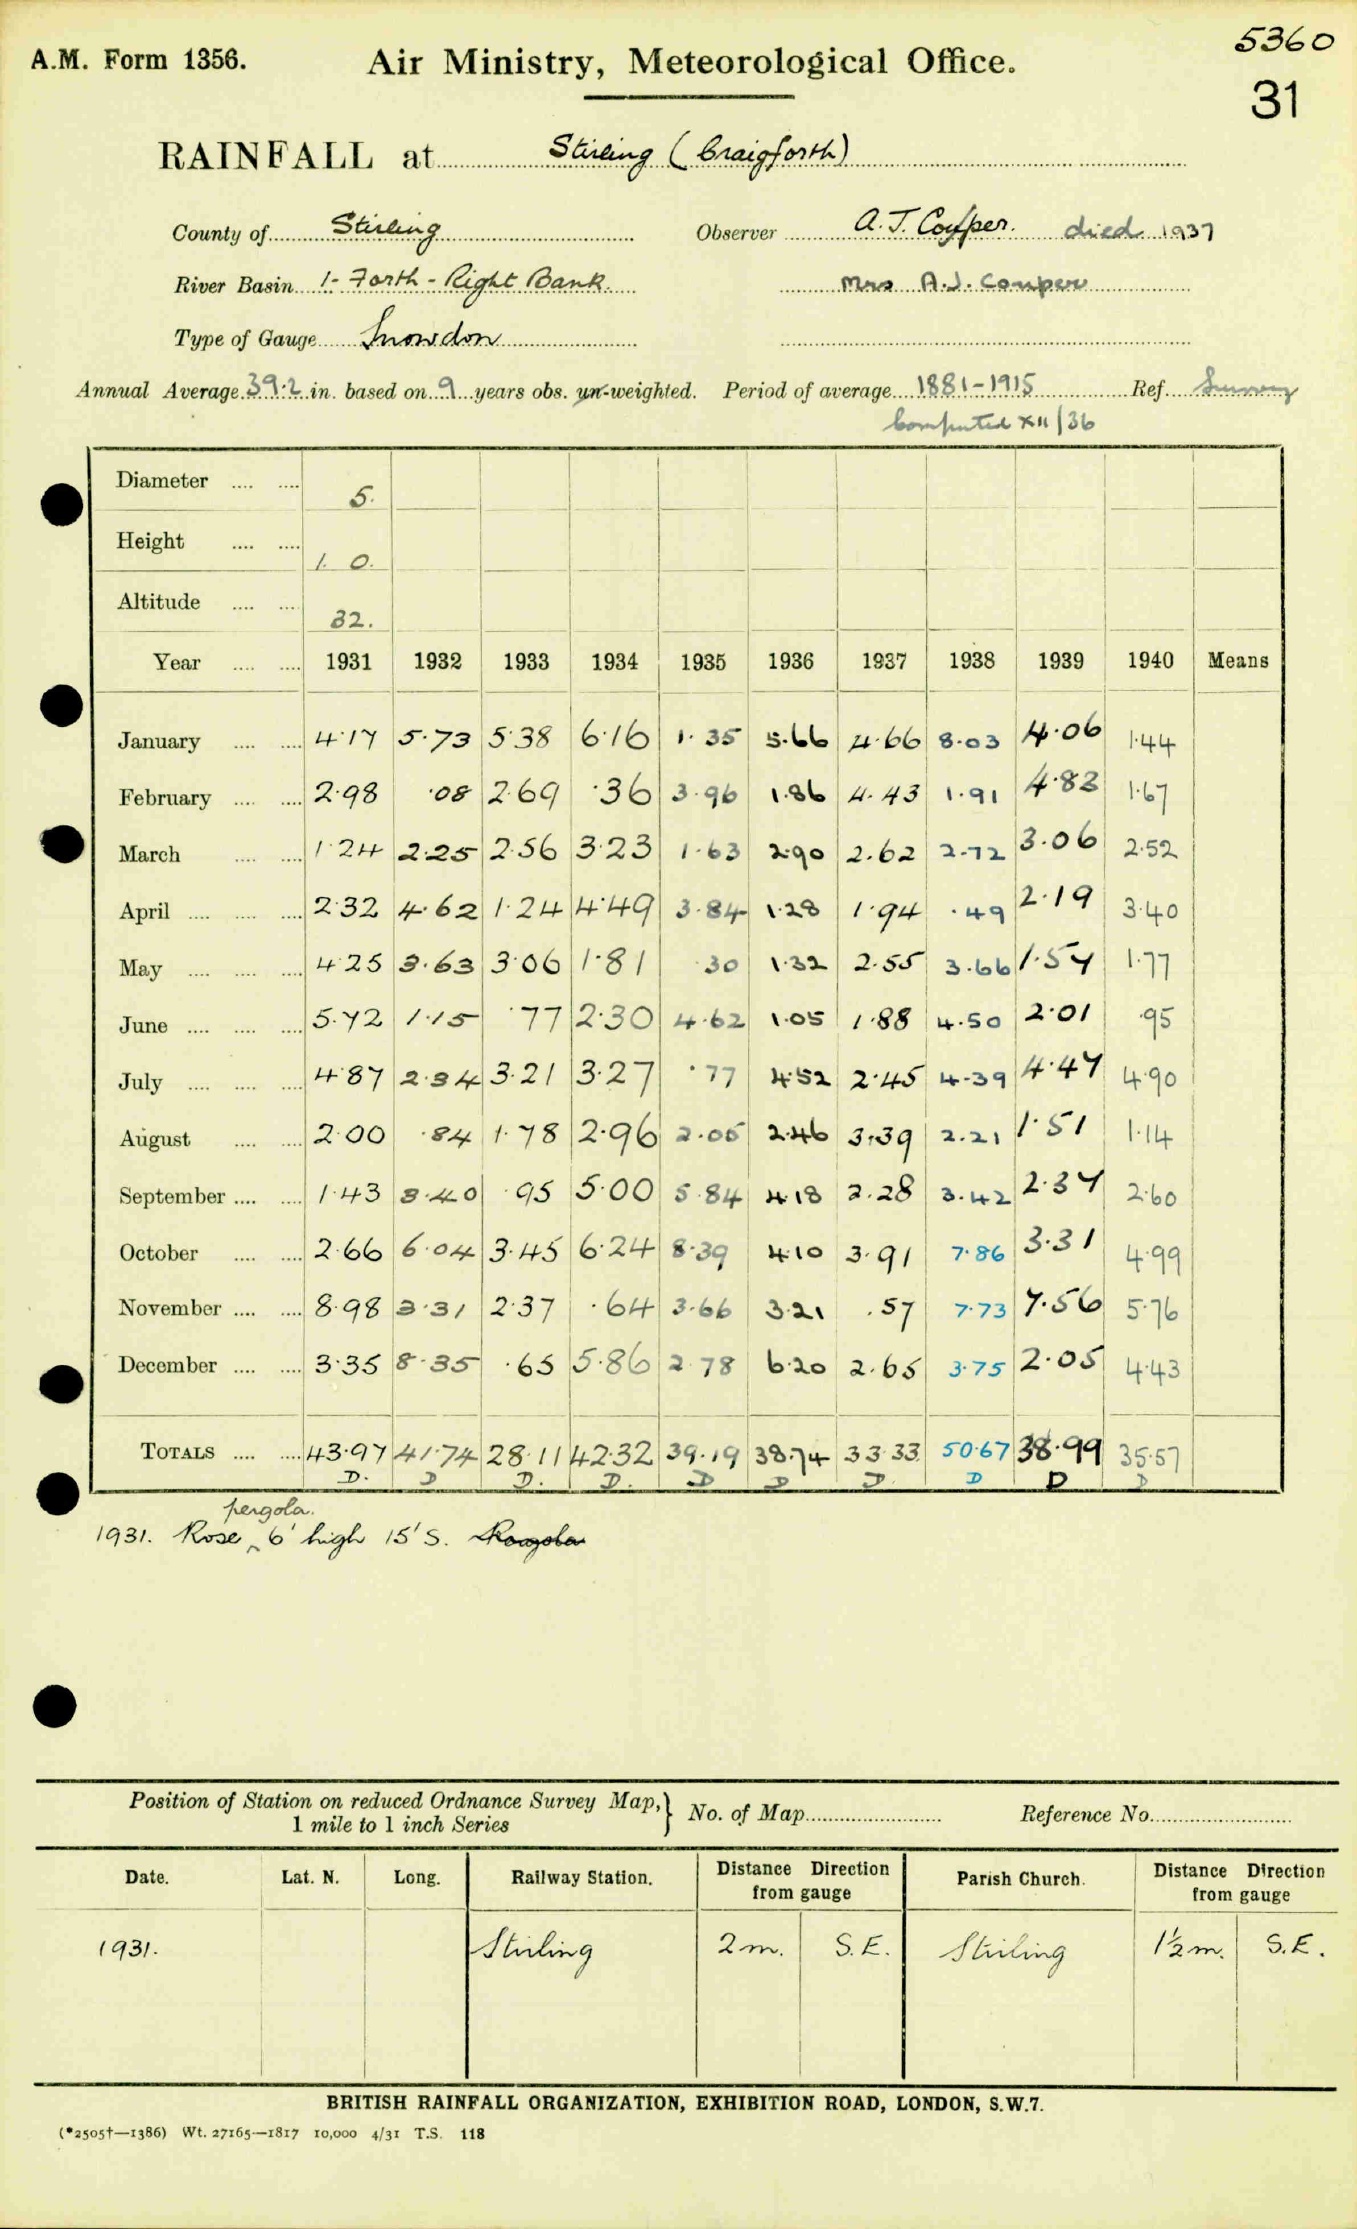 5360
A.M. Form 1356. Air Ministry, Meteorological Office.
31
RAINFALL at Stirling (Craigforth)
County of Stirling Observer A.J. Couper. died 1937
River Basin 1- Forth - Right Bank. Mrs A.J. Couper
Type of Gauge Snowdon
Annual Average 39.2 in. based on 9 years obs. un-weighted. Period of average 1881-1915 Ref. Survey
Computed XII/36
Diameter .... .... 5.
Height .... .... 1. 0.
Altitude .... .... 32.
Year .... .... 1931 1932 1933 1934 1935 1936 1937 1938 1939 1940 Means
January .... .... 4.17 5.73 5.38 6.16 1.35 5.66 4.66 8.03 4.06 1.44
February .... .... 2.98 .08 2.69 .36 3.96 1.86 4.43 1.91 4.83 1.67
March .... .... 1.24 2.25 2.56 3.23 1.63 2.90 2.62 2.72 3.06 2.52
April .... .... .... 2.32 4.62 1.24 4.49 3.84 1.28 1.94 .49 2.19 3.40
May .... .... .... 4.25 3.63 3.06 1.81 .30 1.32 2.55 3.66 1.57 1.77
June .... .... .... 5.72 1.15 .77 2.30 4.62 1.05 1.88 4.50 2.01 .95
July .... .... .... 4.87 2.34 3.21 3.27 .77 4.52 2.45 4.39 4.47 4.90
August .... .... 2.00 .84 1.78 2.96 2.05 2.46 3.39 2.21 1.51 1.14
September .... .... 1.43 3.40 .95 5.00 5.84 4.18 2.28 3.42 2.37 2.60
October .... .... 2.66 6.04 3.45 6.24 8.39 4.10 3.91 7.86 3.31 4.99
November .... .... 8.98 3.31 2.37 .64 3.66 3.21 .57 7.73 7.56 5.76
December .... .... 3.35 8.35 .65 5.86 2.78 6.20 2.65 3.75 2.05 4.43
TOTALS .... .... 43.97 41.74 28.11 42.32 39.19 38.74 33.33 50.67 38.99 35.57
D. D D. D. D D D. D D D
pergola.
1931. Rose 6' high 15' S.
Position of Station on reduced Ordnance Survey Map, } No. of Map Reference No.
1 mile to 1 inch Series
Date. Lat. N. Long. Railway Station. Distance Direction from gauge Parish Church. Distance Direction from gauge
1931. Stirling 2 m. S.E. Stirling 1½ m. S.E.
BRITISH RAINFALL ORGANIZATION, EXHIBITION ROAD, LONDON, S.W.7.
(*2505†—1386) Wt. 27165—1817 10,000 4/31 T.S. 118